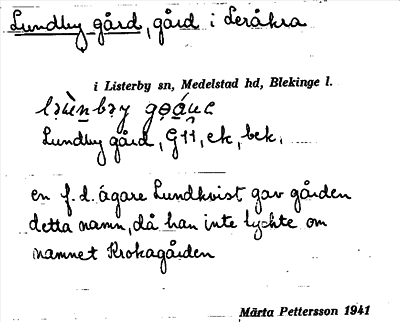 Lundby gård, gård i Leråkra
i Listerby sn, Medelstad hd, Blekinge l.
Lundby gård, G11, ek, bek.
en f.d. ägare Lundkvist gav gården
detta namn, då han inte tyckte om
namnet Krokagården
Märta Pettersson 1941